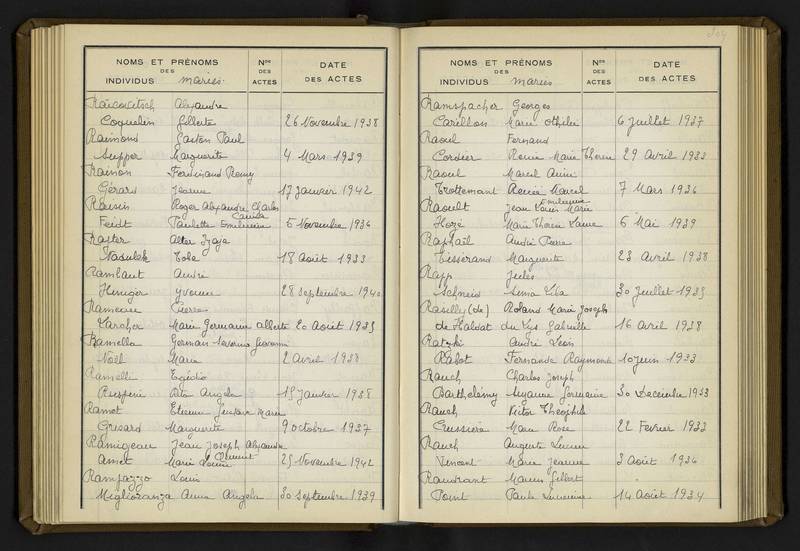 NOMS ET PRÉNOMS
DES
INDIVIDUS mariés
Nos
DES
ACTES
DATE
DES ACTES
Raicovitsch Alexandre
Coquelin Gilberte 26 Novembre 1938
Raimond Gaston Paul
Supper Marguerite 4 Mars 1939
Rainon Ferdinand Remy
Gérard Jeanne 17 janvier 1942
Raisin Roger Alexandre Charles
Camille
Feidt Paulette 5 Novembre 1936
Rajter Alter
18 Août 1933
Rambaut André
Heniger Yvonne 28 septembre 1940
Rameau Pierre
Larcher Marie Germaine Alberte 20 Août 1935
Ramella German Severino Giovanni
Noël Marie 2 Avril 1938
Ramelli Egidio
Rita Angela 15 Janvier 1938
Ramet Etienne Gustave Marie
Grisard Marguerite 9 octobre 1937
Ramigeau Jean Joseph Alexandre
Clément
Amet Marie Louise 25 Novembre 1942
Rampazzo Louis
Migliozanza Anna Angela 30 septembre 1939
NOMS ET PRÉNOMS
DES
INDIVIDUS mariés
Nos
DES
ACTES
DATE
DES ACTES
Ramspacher Georges
Carillon Marie Othilie 6 juillet 1937
Raoul Fernand
Cordier Renée Marie Thérèse 29 Avril 1933
Raoul Marcel
Trottemant Renée Marcel 7 Mars 1936
Raoult Jean Louis Marie
Marie Thérèse Laure 6 Mai 1939
Raphaël André Pierre
Tisserand Marguerite 23 Avril 1938
Rapp Jules
Schneid 30 Juillet 1935
Rasilly (de) Roland Marie Joseph
de Haldat du Lys Gabrielle 16 Avril 1938
Ratzki André Léon
Rabot Fernande Raymonde 10 juin 1933
Rauch Charles Joseph
Barthelémy Suzanne Germaine 30 Décembre 1933
Rauch Victor Théophile
Cussière Marie Rose 22 Fevrier 1933
Rauch Auguste Lucien
Vincent Marie Jeanne 3 Août 1936
Raudrant Marius Gilbert
Point Paule Lucienne 14 Août 1934